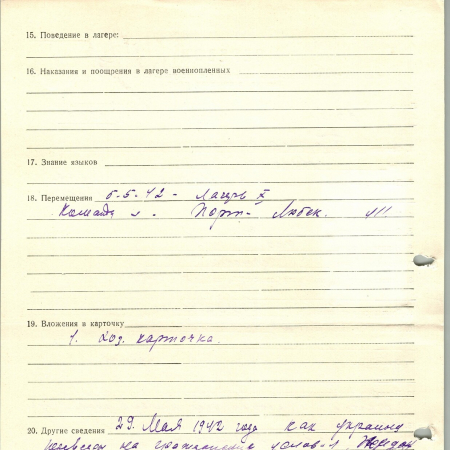 15. Поведение в лагере:
16. Наказания и поощрения в лагере военнопленных
17. Знание языков
18. Перемещения 6-5-42 - Лагерь X
Команда Порт- Любек.
19. Вложения в карточку
1. Хоз. карточка.
20. Другие сведения 29. Мая 1942 года как украинец
на гражданские условия